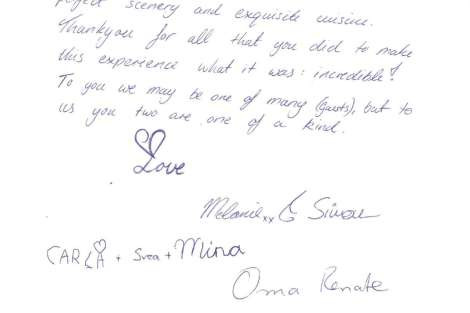 perfect scenery and exquisite cuisine.
Thankyou for all that you did to make
this experience what it was: incredible!
To you we may be one of many (guests), but to
us you two are one of a kind.
Love
Melanie xx & Simon
CARLA + Svea + Mina
Oma Renate